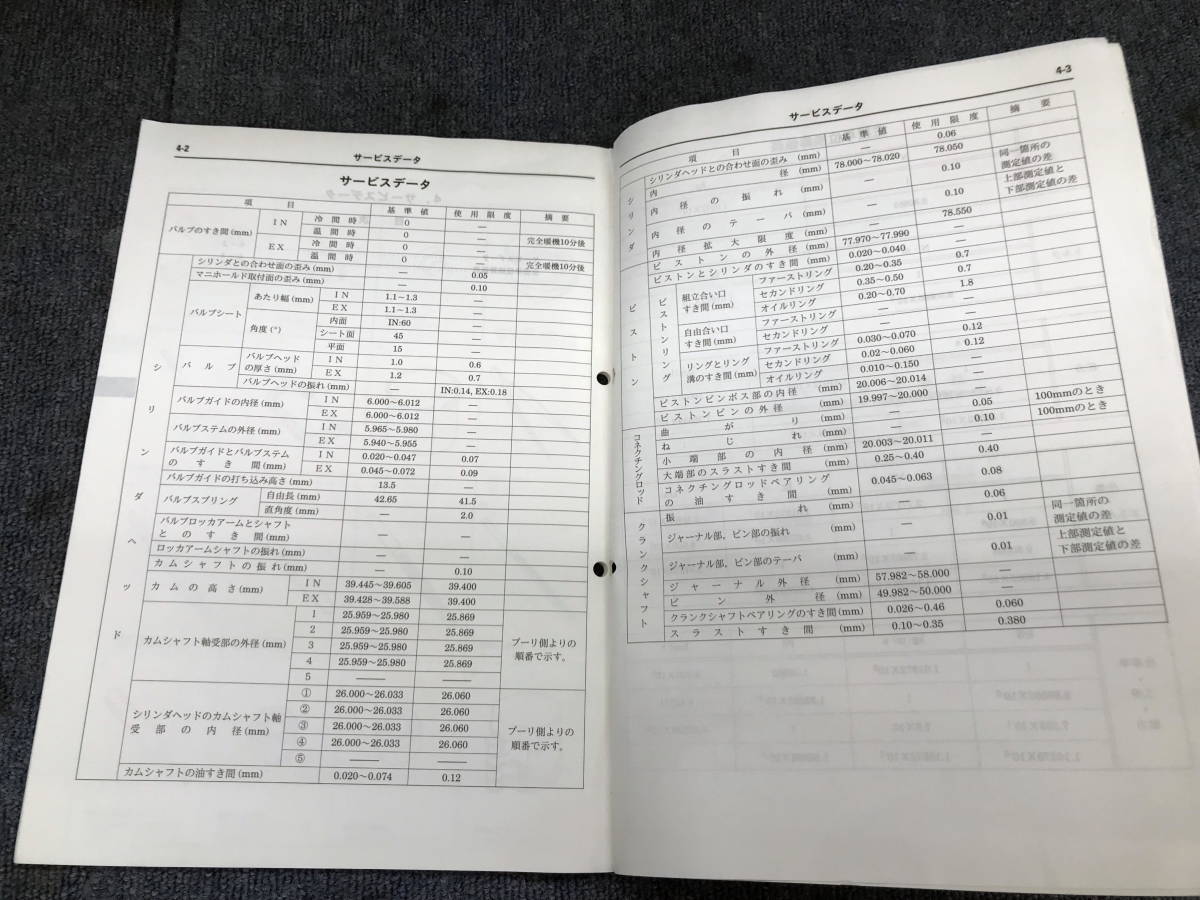 4-2
サービスデータ
サービスデータ
項 目 基 準 値 使 用 限 度 摘 要
バルブのすき間 (mm) IN 冷 間 時 0 —
温 間 時 0 — 完全暖機10分後
EX 冷 間 時 0 —
温 間 時 0 — 完全暖機10分後
シリンダヘッド
シリンダとの合わせ面の歪み (mm) — 0.05
マニホールド取付面の歪み (mm) — 0.10
バルブシート あたり幅 (mm) IN 1.1~1.3 —
EX 1.1~1.3 —
角度 (°) 内面 IN:60 —
シート面 45 —
平面 15 —
バルブ バルブヘッドの厚さ (mm) IN 1.0 0.6
EX 1.2 0.7
バルブヘッドの振れ (mm) — IN:0.14, EX:0.18
バルブガイドの内径 (mm) IN 6.000~6.012 —
EX 6.000~6.012 —
バルブステムの外径 (mm) IN 5.965~5.980 —
EX 5.940~5.955 —
バルブガイドとバルブステムのすき間 (mm) IN 0.020~0.047 0.07
EX 0.045~0.072 0.09
バルブガイドの打ち込み高さ (mm) 13.5 —
バルブスプリング 自由長 (mm) 42.65 41.5
直角度 (mm) — 2.0
バルブロッカアームとシャフトとのすき間 (mm) — —
ロッカアームシャフトの振れ (mm) — —
カムシャフトの振れ (mm) — 0.10
カムの高さ (mm) IN 39.445~39.605 39.400
EX 39.428~39.588 39.400
カムシャフト軸受部の外径 (mm) 1 25.959~25.980 25.869 プーリ側よりの順番で示す。
2 25.959~25.980 25.869
3 25.959~25.980 25.869
4 25.959~25.980 25.869
5 — —
シリンダヘッドのカムシャフト軸受部の内径 (mm) ① 26.000~26.033 26.060 プーリ側よりの順番で示す。
② 26.000~26.033 26.060
③ 26.000~26.033 26.060
④ 26.000~26.033 26.060
⑤ — —
カムシャフトの油すき間 (mm) 0.020~0.074 0.12
4-3
サービスデータ
項 目 基 準 値 使 用 限 度 摘 要
シリンダ
シリンダヘッドとの合わせ面の歪み (mm) — 0.06
内 径 (mm) 78.000~78.020 78.050
内径の振れ (mm) — 0.10 同一箇所の測定値の差
内径のテーパ (mm) — 0.10 上部測定値と下部測定値の差
内径拡大限度 (mm) — 78.550
ピストン
ピストンの外径 (mm) 77.970~77.990 —
ピストンとシリンダのすき間 (mm) 0.020~0.040 —
ピストンリング 組立合い口すき間 (mm) ファーストリング 0.20~0.35 0.7
セカンドリング 0.35~0.50 0.7
オイルリング 0.20~0.70 1.8
自由合い口すき間 (mm) ファーストリング — —
セカンドリング — —
リングとリング溝のすき間 (mm) ファーストリング 0.030~0.070 0.12
セカンドリング 0.02~0.060 0.12
オイルリング 0.010~0.150 —
ピストンピンボス部の内径 (mm) 20.006~20.014 —
ピストンピンの外径 (mm) 19.997~20.000 —
コネクチングロッド
曲がり (mm) — 0.05 100mmのとき
ねじれ (mm) — 0.10 100mmのとき
小端部の内径 (mm) 20.003~20.011 —
大端部のスラストすき間 (mm) 0.25~0.40 0.40
コネクチングロッドベアリングの油すき間 (mm) 0.045~0.063 0.08
クランクシャフト
振れ (mm) — 0.06
ジャーナル部,ピン部の振れ (mm) — 0.01 同一箇所の測定値の差
ジャーナル部,ピン部のテーパ (mm) — 0.01 上部測定値と下部測定値の差
ジャーナル外径 (mm) 57.982~58.000 —
ピン外径 (mm) 49.982~50.000 —
クランクシャフトベアリングのすき間 (mm) 0.026~0.46 0.060
スラストすき間 (mm) 0.10~0.35 0.380